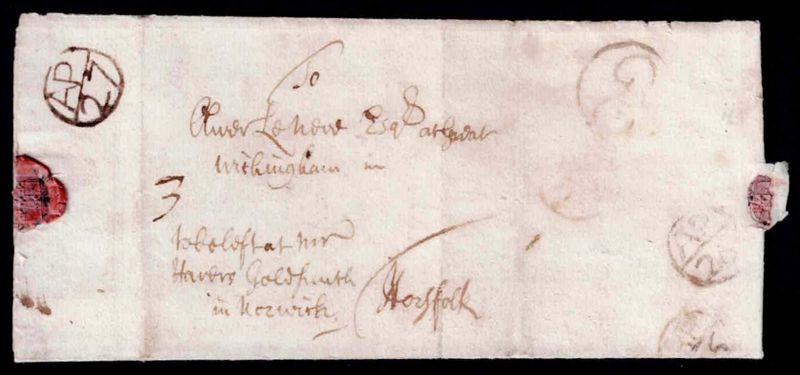 AP
27
To
Oliver Le Neve Esqr att great
Witchingham in
3
to be left at Mr
Havers Goldsmith
in Norwich
Norffolk
G
AP